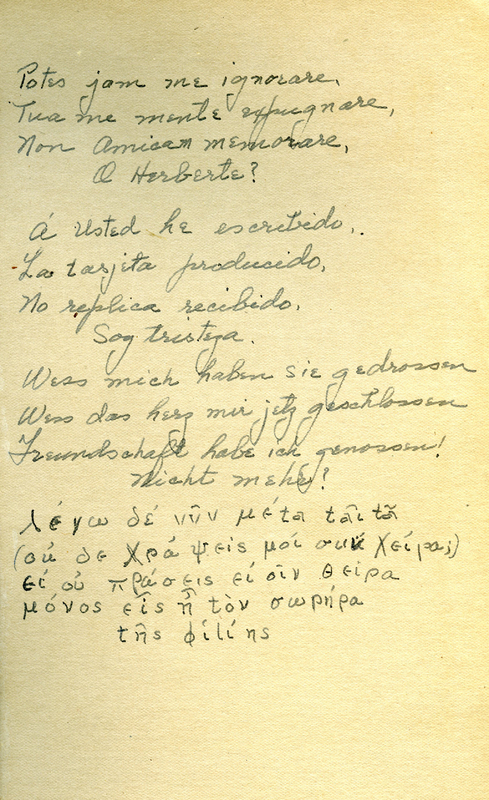 Potes jam me ignorare,
Tua me mente expugnare,
Non Amicam memorare,
O Herberte?
Á Usted he escribido,.
La tarjeta producido,
No replica recibido,
Soy tristeza.
Wess mich haben sie gedrossen
Wess das herz mir jetz geschlossen
Freundschaft habe ich genossen!
Nicht mehr?
λέγω δέ νῦν μέτα ταῖτα
(οὐ δε χρά ψεις μοί σuκ χείρας)
εἰ οὐ πράσεις εἰ οἴν θείρα
μόνος εἷς ἦ τὸν σωρήρα
τῆς φίλίης